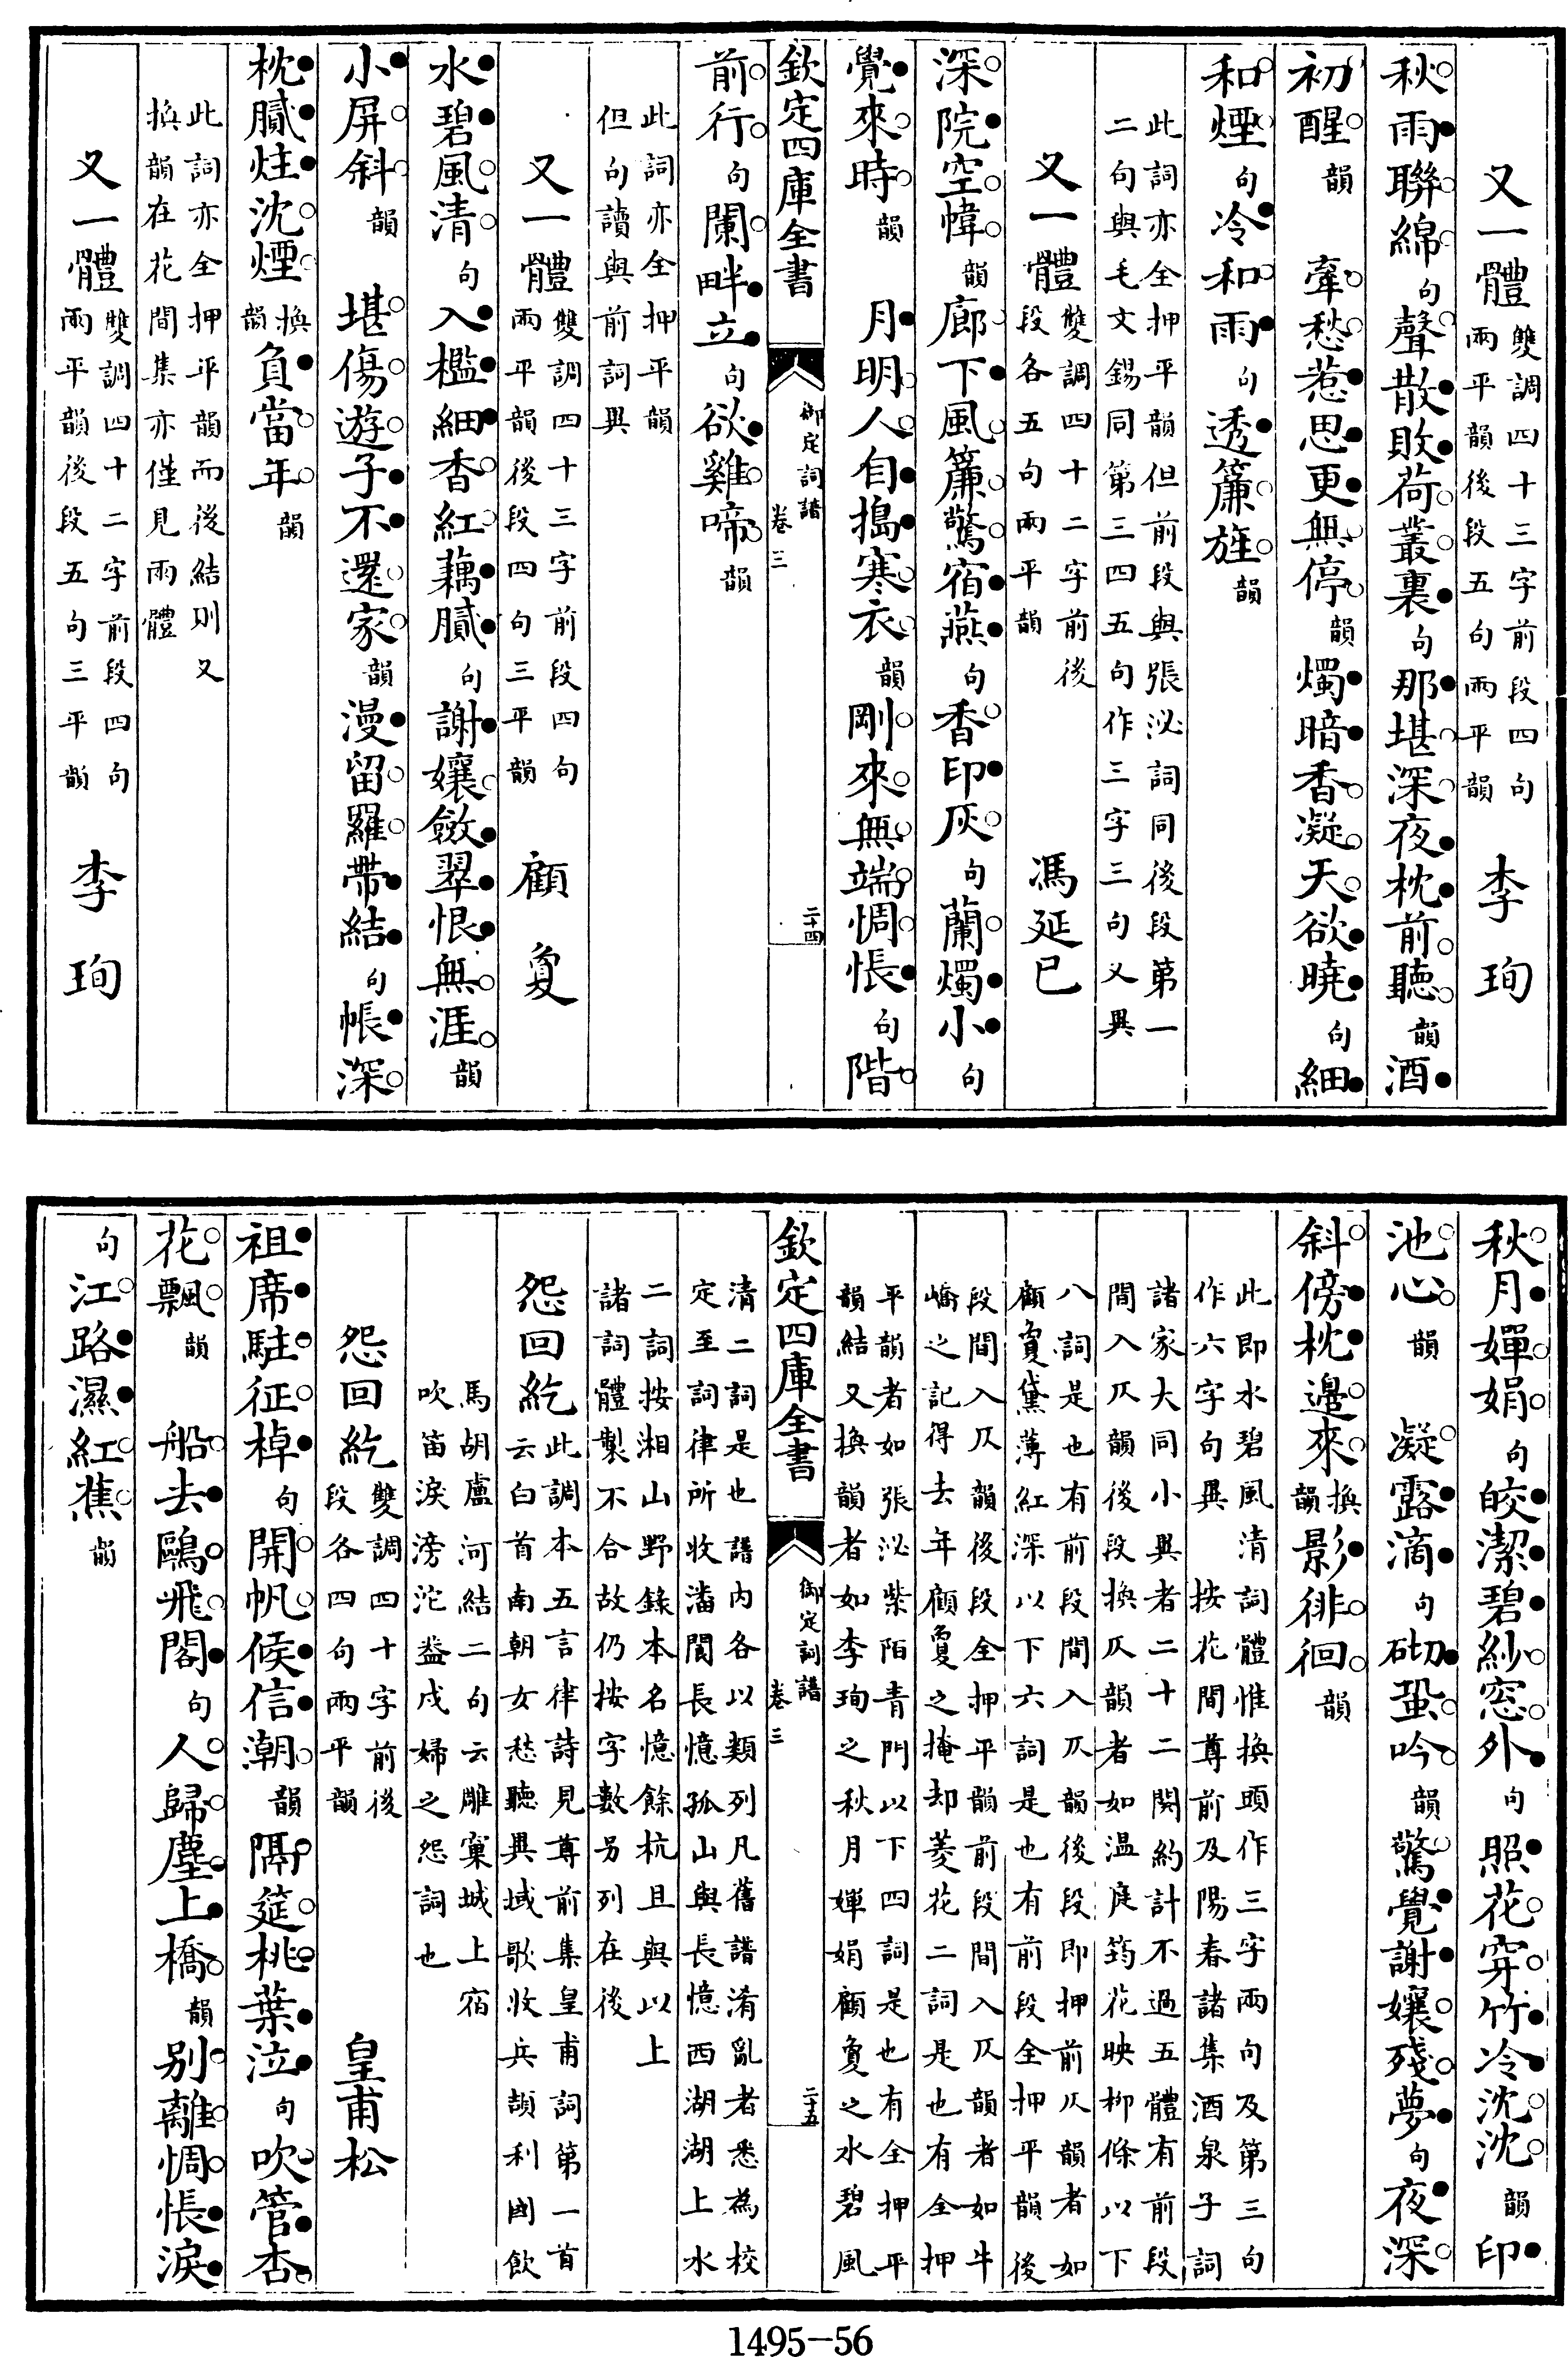 又一體雙調四十三字前段四句兩平韻後段五句兩平韻 李珣
秋雨聯綿句聲散敗荷叢裏句那堪深夜枕前聽韻酒
初醒韻 牽愁惹思更無停韻燭暗香凝天欲曉句細
和煙句冷和雨句透簾旌韻
此詞亦全押平韻但前段與張泌詞同後段第一
二句與毛文錫同第三四五句作三字三句又異
又一體雙調四十二字前後段各五句兩平韻 馮延巳
深院空幃韻廊下風簾驚宿燕句香印灰句蘭燭小句
覺來時韻 月明人自搗寒衣韻剛來無端惆悵句階
欽定四庫全書 御定詞譜 卷三 二十四
前行句闌畔立句欲雞啼韻
此詞亦全押平韻
但句讀與前詞異
又一體雙調四十三字前段四句兩平韻後段四句三平韻 顧夐
水碧風清句入檻細香紅藕膩句謝孃斂翠恨無涯韻
小屏斜韻 堪傷遊子不還家韻漫留羅帶結句帳深
枕膩炷沈煙換韻負當年韻
此詞亦全押平韻而後結則又
換韻在花間集亦僅見兩體
又一體雙調四十二字前段四句兩平韻後段五句三平韻 李珣
秋月嬋娟句皎潔碧紗窓外句照花穿竹冷沈沈韻印
池心韻 凝露滴句砌蛩吟韻驚覺謝孃殘夢句夜深
斜傍枕邊來換韻影徘徊韻
此即水碧風清詞體惟換頭作三字兩句及第三句
作六字句異 按花間尊前及陽春諸集酒泉子詞
諸家大同小異者二十二闋約計不過五體有前段
間入仄韻後段換仄韻者如温庭筠花映柳條以下
八詞是也有前段間入仄韻後段即押前仄韻者如
顧夐黛薄紅深以下六詞是也有前段全押平韻後
段間入仄韻後段全押平韻前段間入仄韻者如牛
嶠之記得去年顧夐之掩却菱花二詞是也有全押
平韻者如張泌紫陌青門以下四詞是也有全押平
韻結又換韻者如李珣之秋月嬋娟顧夐之水碧風
欽定四庫全書 御定詞譜 卷三 二十五
清二詞是也譜内各以類列凡舊譜淆亂者悉為校
定至詞律所收潘閬長憶孤山與長憶西湖湖上水
二詞按湘山野錄本名憶餘杭且與以上
諸詞體製不合故仍按字數另列在後
怨回紇此調本五言律詩見尊前集皇甫詞第一首云白首南朝女愁聽異域歌收兵頡利國飲
馬胡盧河結二句云雕窠城上宿
吹笛淚滂沱葢戍婦之怨詞也
怨回紇雙調四十字前後段各四句兩平韻 皇甫松
祖席駐征棹句開帆候信潮韻隔筵桃葉泣句吹管杏
花飄韻 船去鷗飛閣句人歸塵上橋韻别離惆悵淚
句江路濕紅蕉韻
1495-56